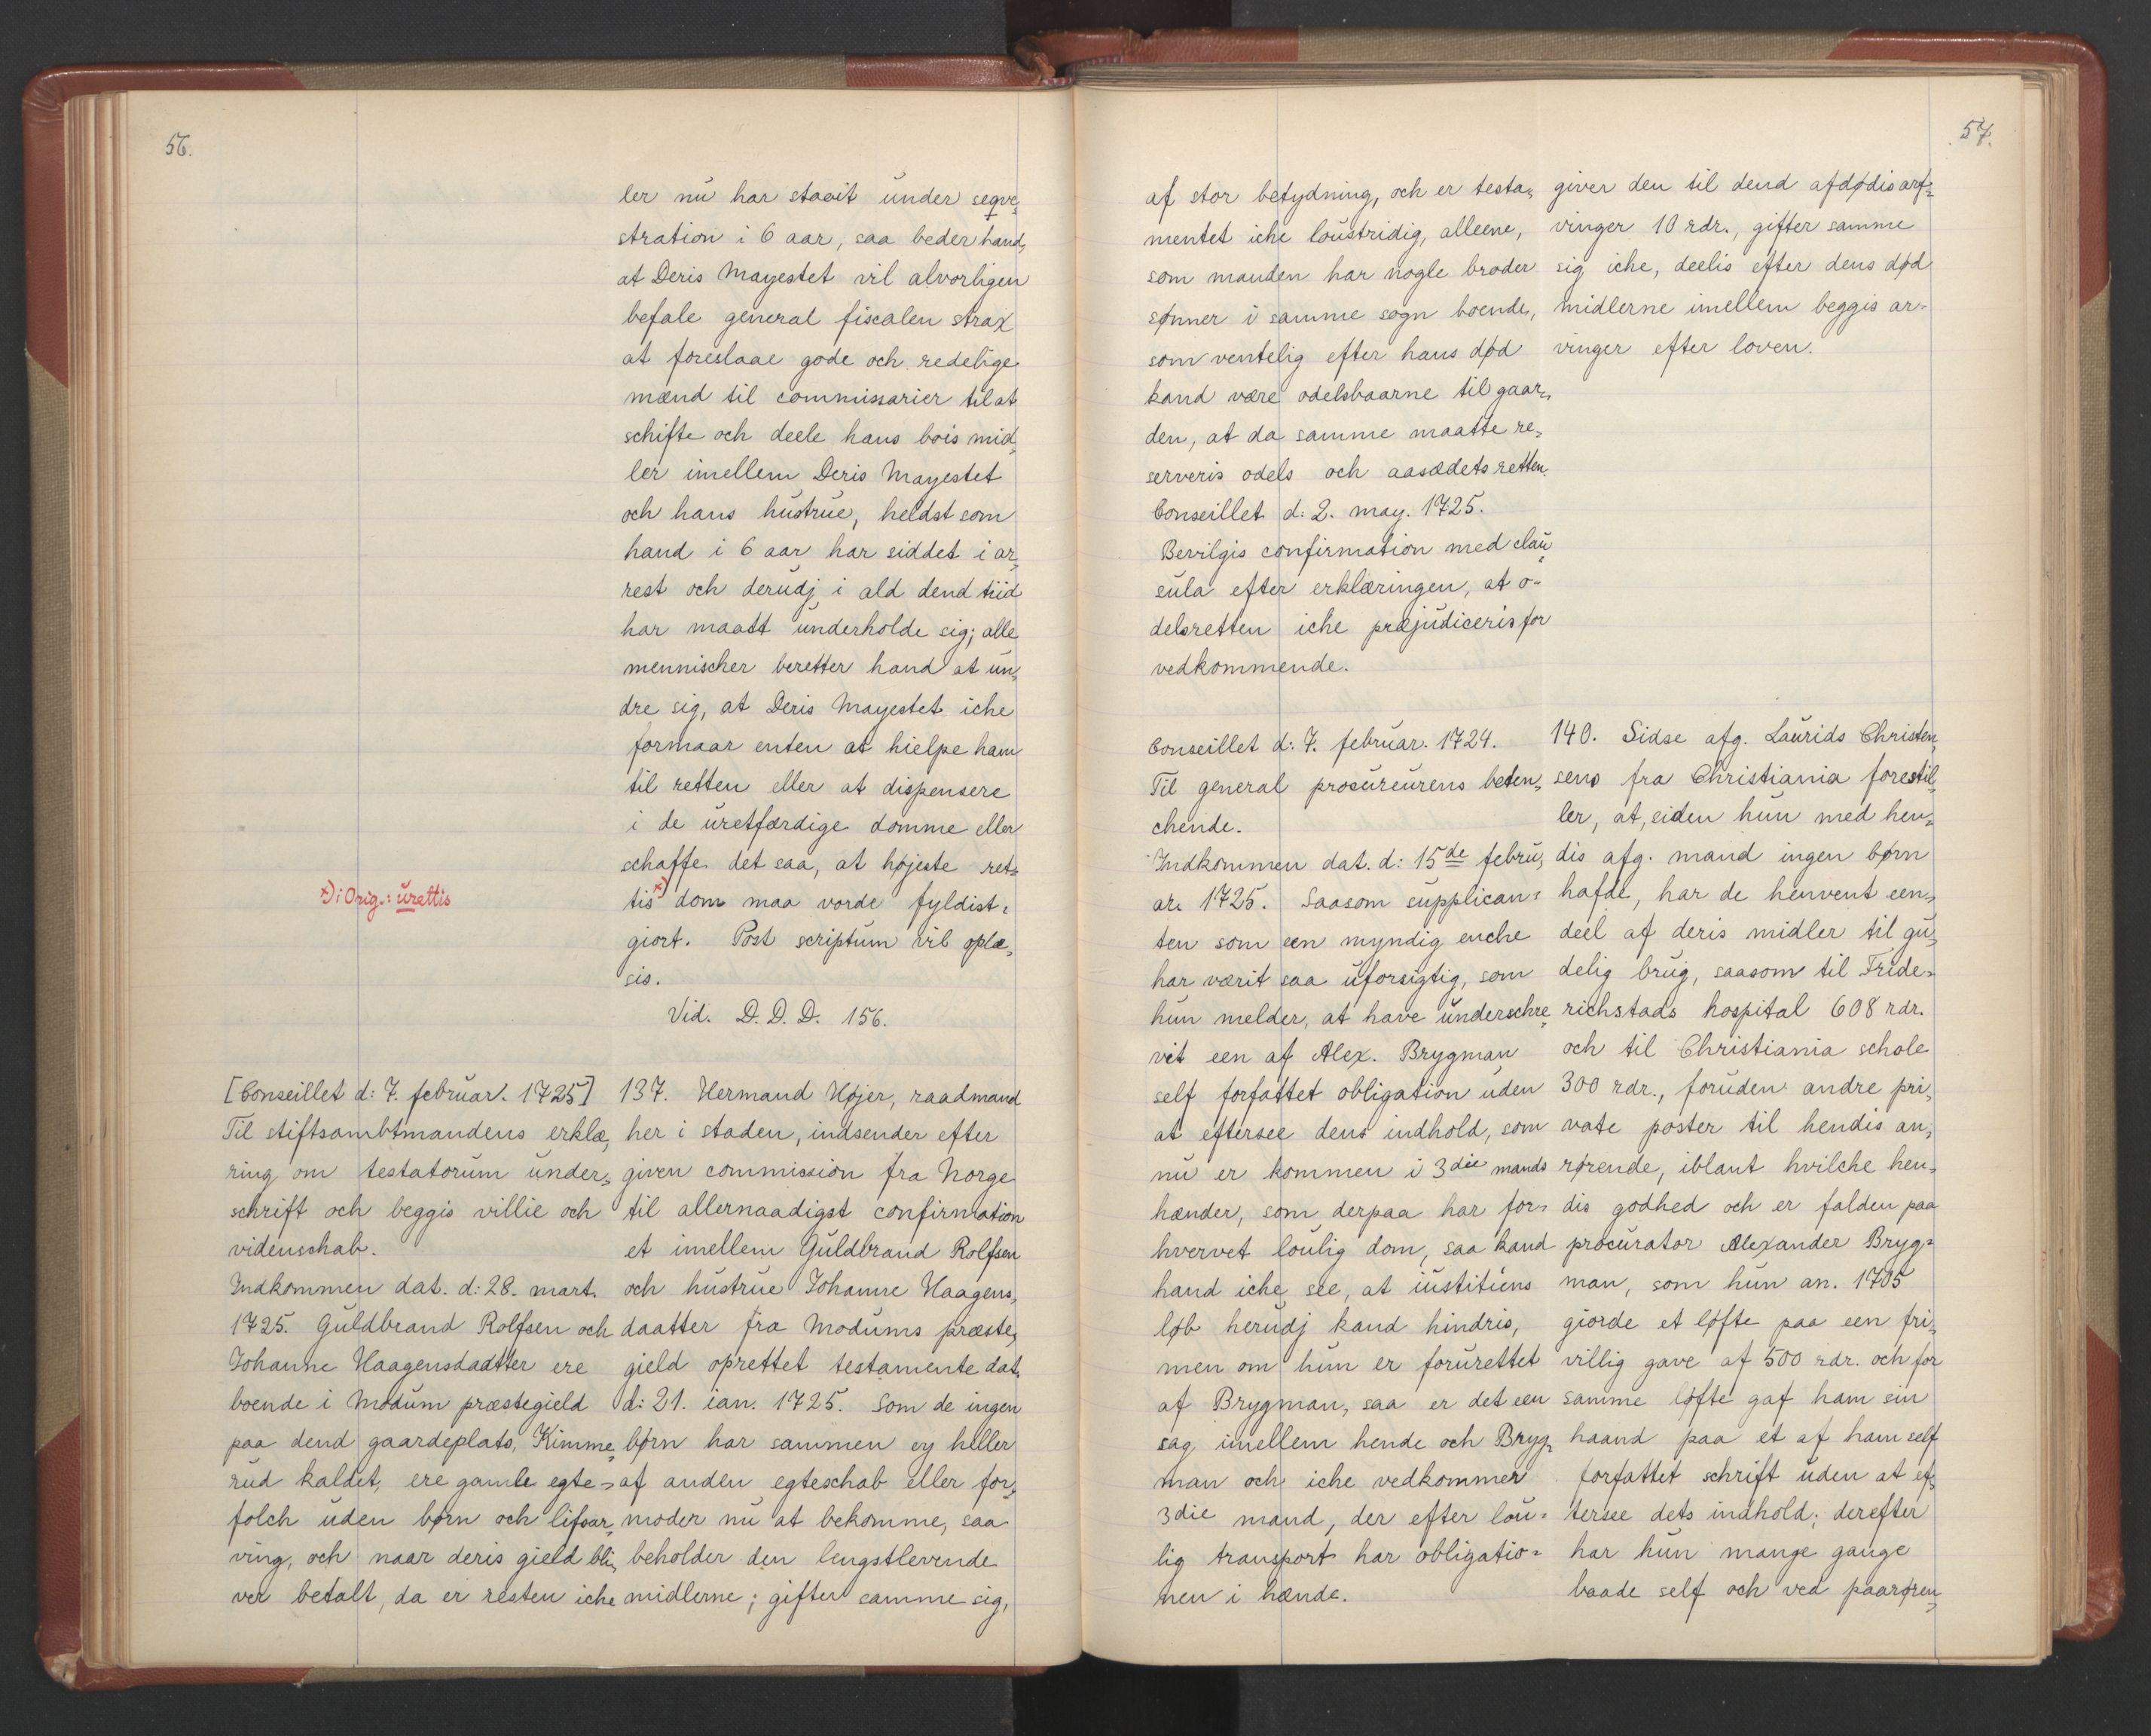 56.
ler nu har staait under seqve„
stration i 6 aar, saa beder hand,
at Deris Mayestet vil alvorligen
befale general fiscalen strax
at foreslaae gode och redelige
mænd til commissarier til at
schifte och deele hans bois mid„
ler imellem Deris Mayestet
och hans hustrue, heldst som
hand i 6 aar har siddet i ar„
rest och derudj i ald dend tiid
har maatt underholde sig; alle
mennischer beretter hand at un„
dre sig, at Deris Mayestet iche
formaar enten at hielpe ham
til retten eller at dispensere
i de uretfærdige domme eller
schaffe det saa, at højeste ret„
tis x) dom maa vorde fyldist„
giort. Post scriptum vil oplæ„
sis.
Vid. D. D. D. 156.
x) i Orig.: urettis
[Conseillet d: 7. februar. 1725]
Til stiftsambtmandens erklæ„
ring om testatorum under„
schrift och beggis villie och
videnschab.
Indkommen dat. d: 28. mart.
1725. Guldbrand Rolfsen och
Johanne Haagensdaatter ere
boende i Modum præstegield
paa dend gaardeplats, Kimme„
rud kaldet, ere gamle egte„
folch uden børn och lifsar„
ving, och naar deris gield bli„
ver betalt, da er resten iche
137. Hermand Højer, raadmand
her i staden, indsender efter
given commission fra Norge
til allernaadigst confirmation
et imellem Guldbrand Rolfsen
och hustrue Johanne Haagens„
daatter fra Modums præste„
gield oprettet testamente dat.
d: 21. ian. 1725. Som de ingen
børn har sammen ey heller
af anden egteschab eller for„
moder nu at bekomme, saa
beholder den lengstlevende
midlerne; gifter samme sig,
57.
af stor betydning, och er testa„
mentet iche loustridig, alleene,
som manden har nogle broder
sønner i samme sogn boende,
som ventelig efter hans død
kand være odelsbaarne til gaar„
den, at da samme maatte re„
serveris odels och aasædets retten.
Conseillet d: 2. may. 1725.
Bevilgis confirmation med clau„
sula efter erklæringen, at o-
delsretten iche præjudiceris for
vedkommende.
giver den til dend afdødis arf„
vinger 10 rdr., gifter samme
sig iche, deelis efter dens død
midlerne imellem beggis ar-
vinger efter loven.
Conseillet d: 7. februar. 1724.
Til general procureurens beten„
chende.
Indkommen dat. d: 15de febru„
ar. 1725. Saasom supplican„
ten som een myndig enche
har værit saa uforsigtig, som
hun melder, at have underschre„
vit een af Alex. Brygman
self forfattet obligation uden
at eftersee dens indhold, som
nu er kommen i 3die mands
hænder, som derpaa har for„
hvervet loulig dom, saa kand
hand iche see, at iustitiens
løb herudj kand hindris,
men om hun er forurettet
af Brygman, saa er det een
sag imellem hende och Bryg„
man och iche vedkommer
3die mand, der efter lou„
lig transport har obligatio„
nen i hænde.
140. Sidse afg. Laurids Christen„
sens fra Christiania forestil„
ler, at, siden hun med hen„
dis afg. mand ingen børn
hafde, har de henvent een„
deel af deris midler til gu„
delig brug, saasom til Fride„
richstads hospital 608 rdr.
och til Christiania schole
300 rdr., foruden andre pri„
vate poster til hendis an„
rørende, iblant hvilche hen„
dis godhed och er falden paa
procurator Alexander Bryg„
man, som hun an. 1705
giorde et løfte paa een fri„
villig gave af 500 rdr. och for
samme løfte gaf ham sin
haand paa et af ham self
forfattet schrift uden at ef„
tersee dets indhold; derefter
har hun mange gange
baade self och ved paarøren„